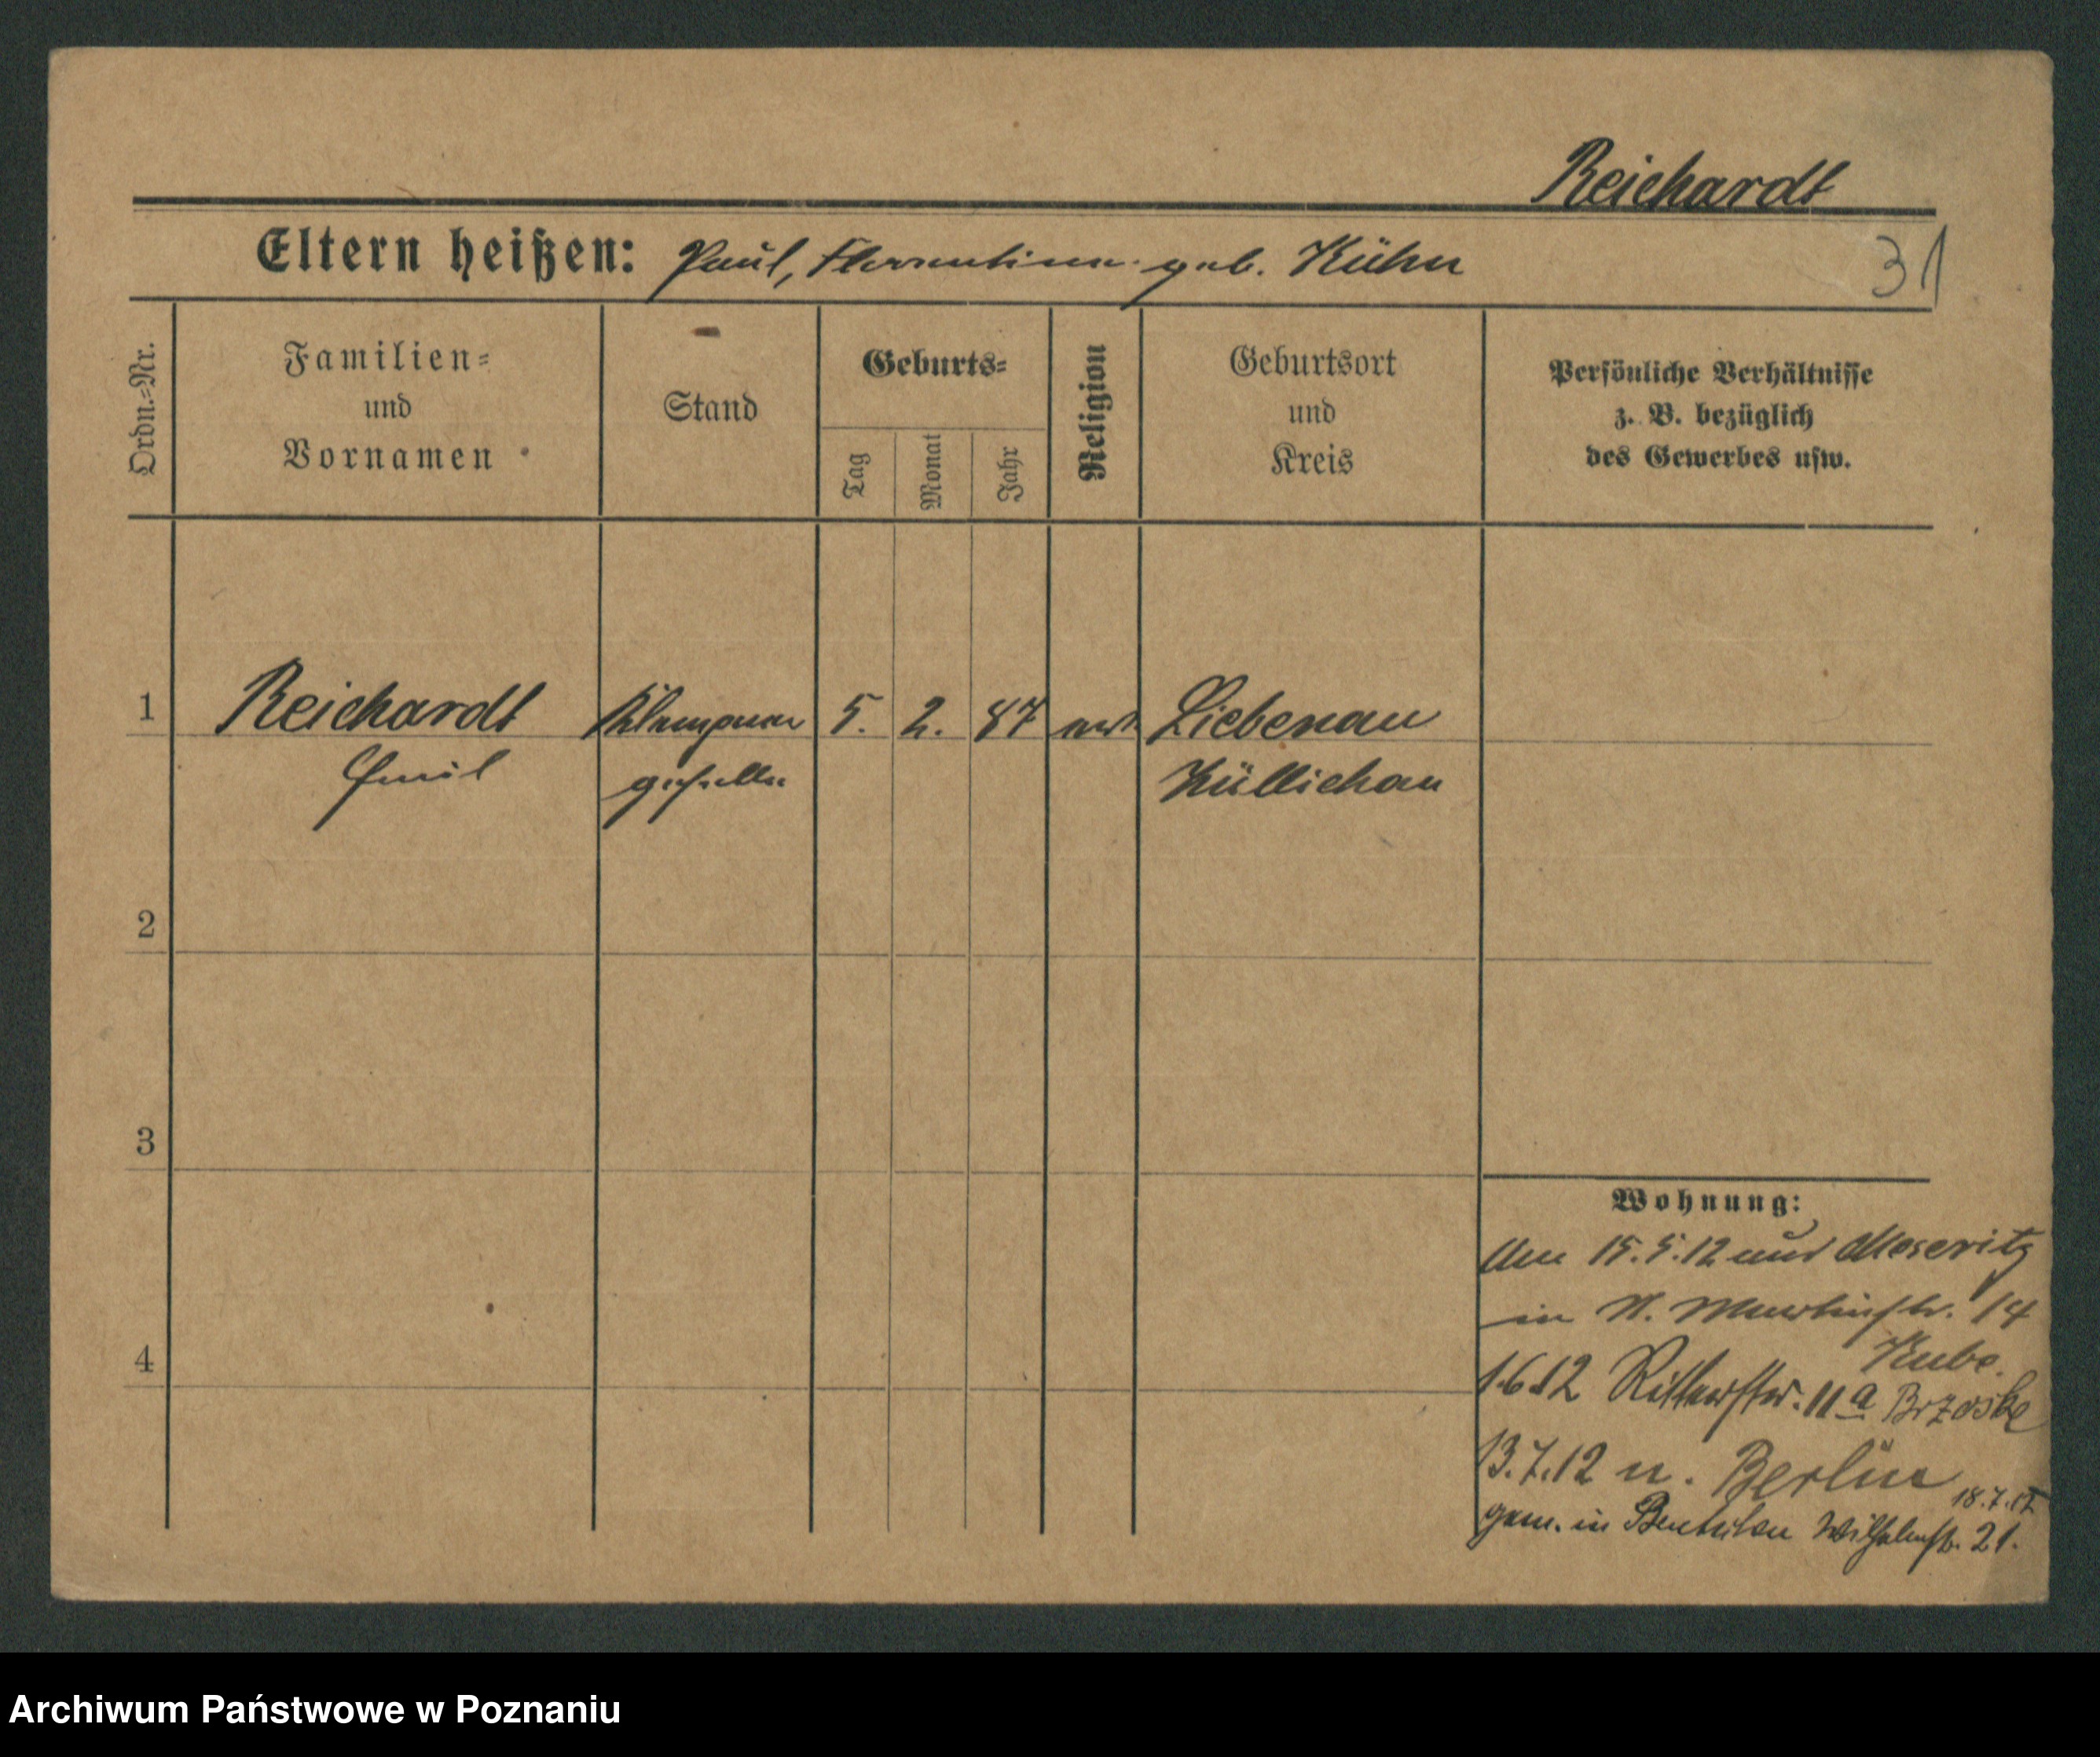 Reichardt
Eltern heißen: Paul, Florentine geb. Kühn
31
Ordn.-Nr.
Familien-
und
Vornamen
Stand
Geburts-
Tag
Monat
Jahr
Religion
Geburtsort
und
Kreis
Persönliche Verhältnisse
z. B. bezüglich
des Gewerbes usw.
1 Reichardt Klempner 5. 2. 87 Liebenau
Emil geselle Züllichau
2
3
4
Wohnung:
Am 15.5.12 aus Meseritz
in St. Martinstr. 14
Kube.
1.6.12 Ritterstr. 11a Brzoske
13.7.12 n. Berlin
18.7.12
gem. in Wilhelmstr. 21.
Archiwum Państwowe w Poznaniu